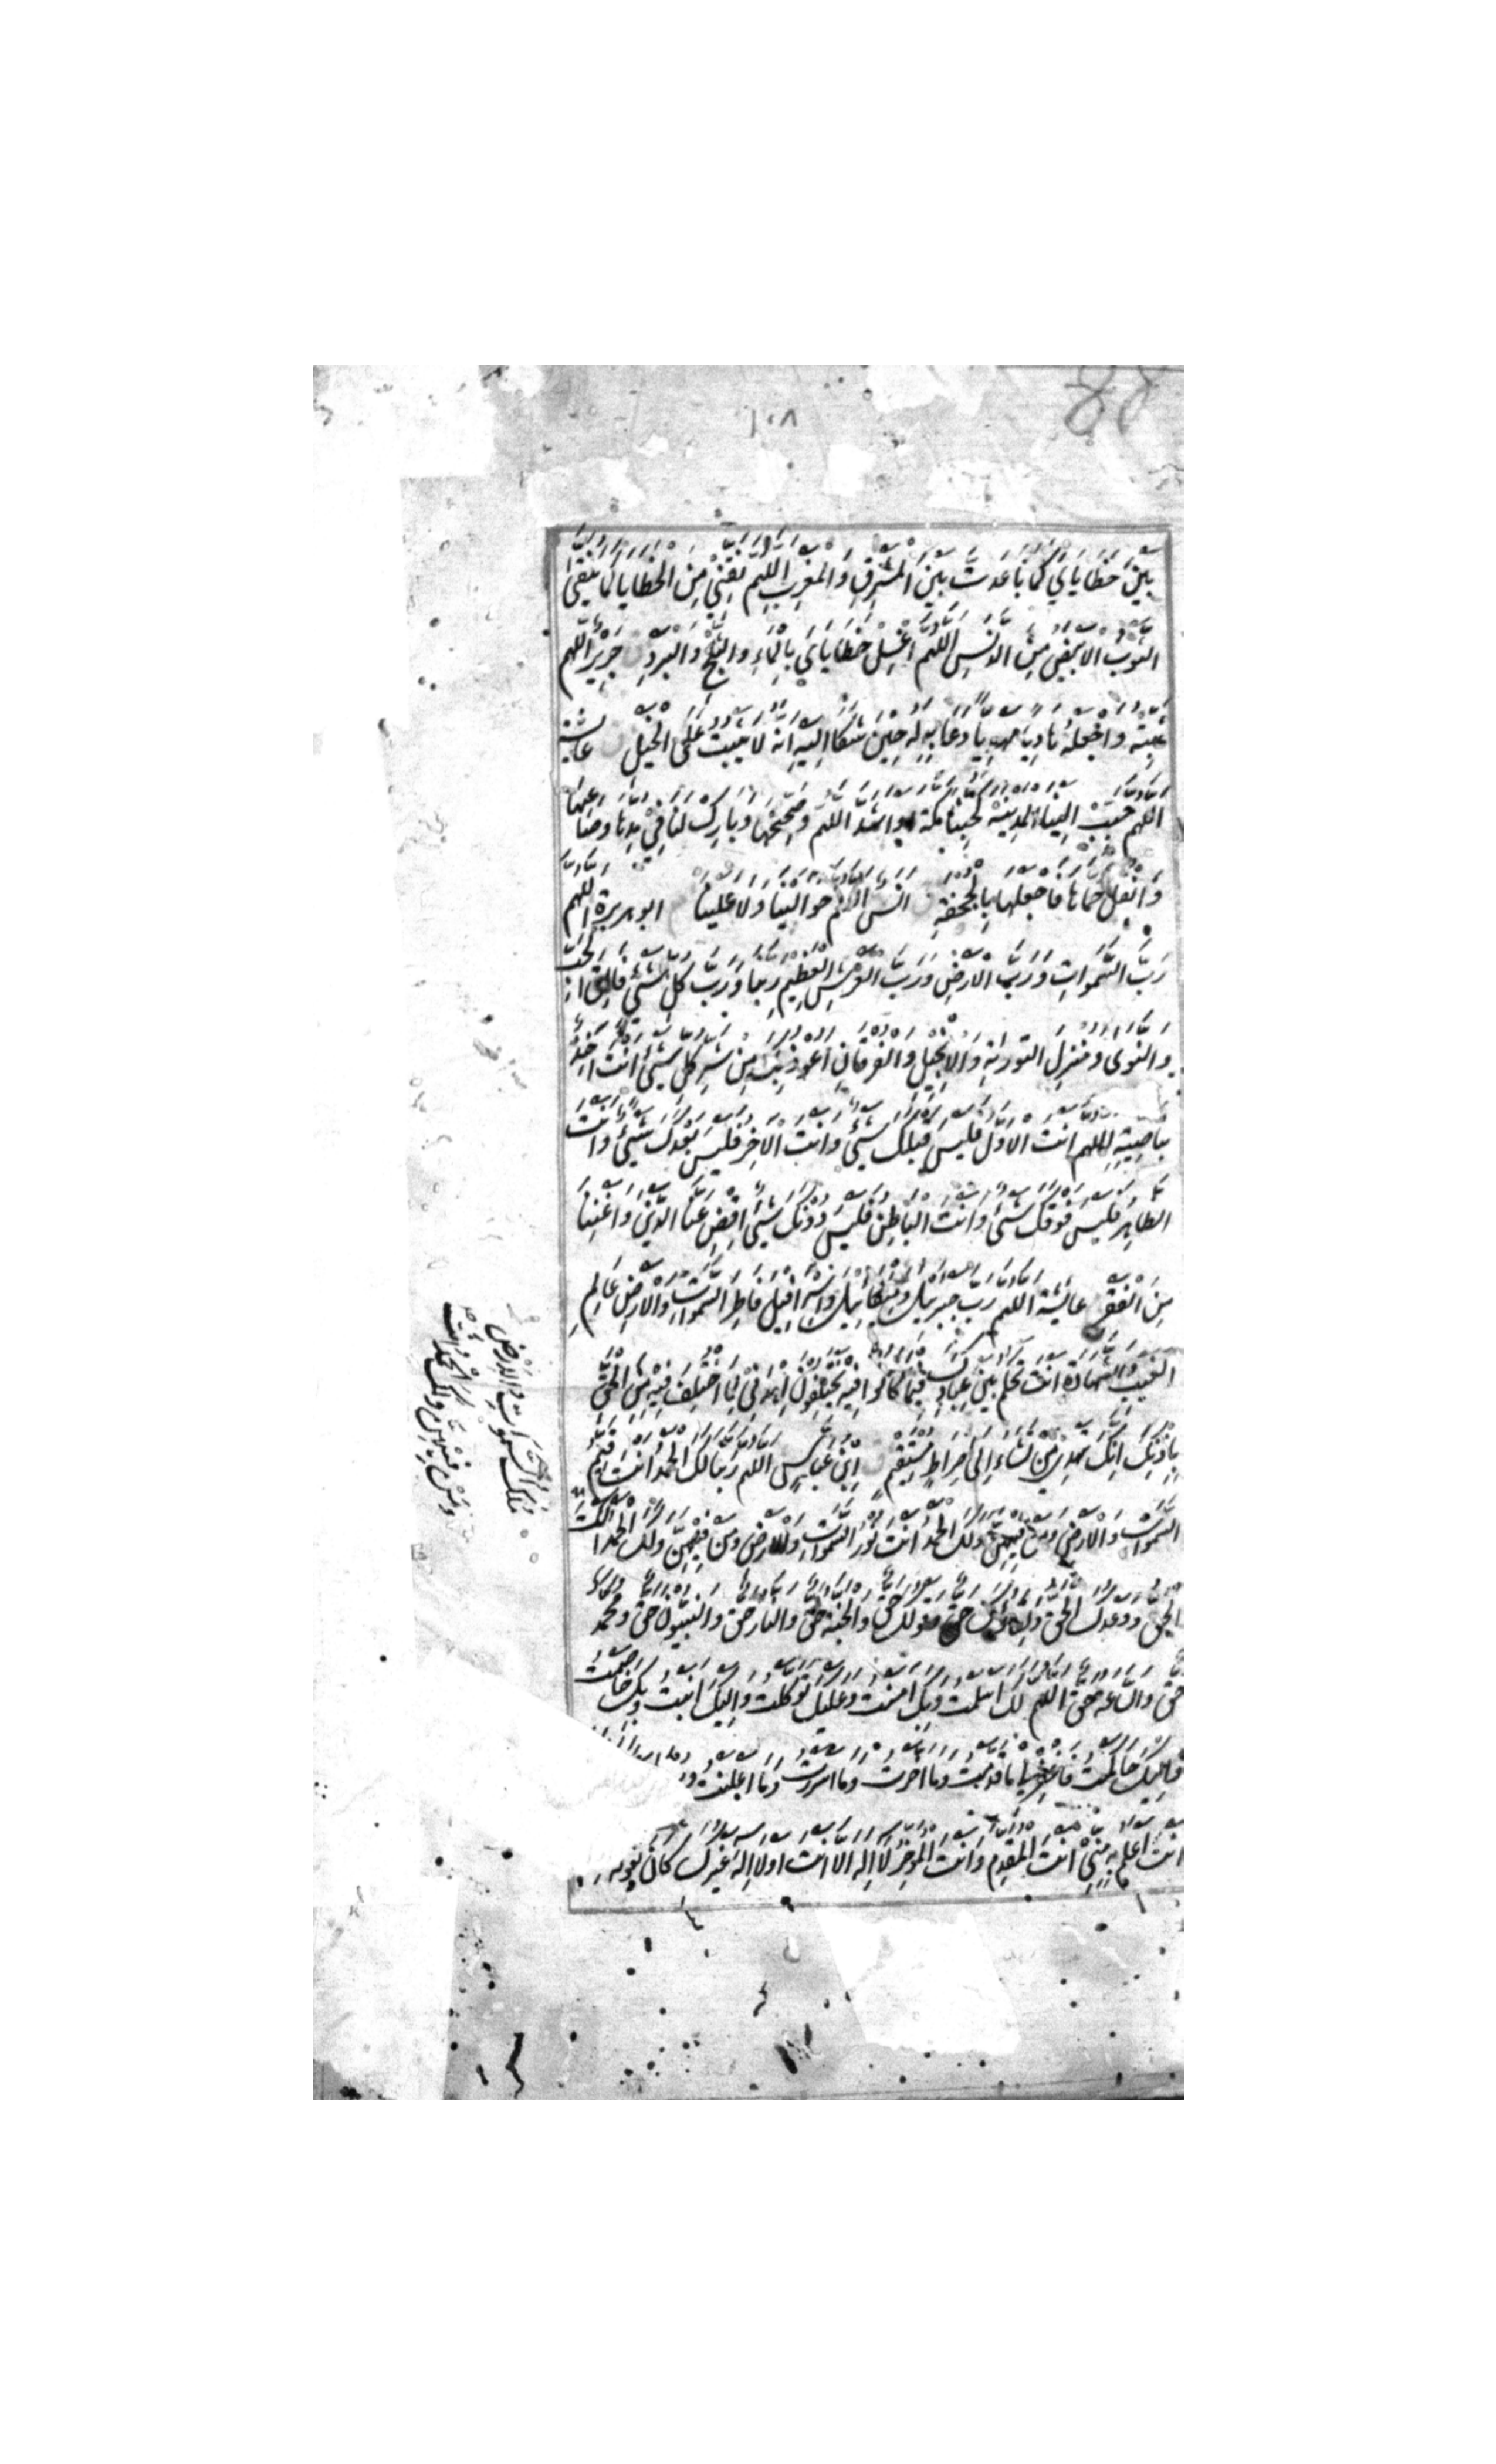 ١٠٨
88
بَيْنَ خَطَايَايَ كَمَا بَاعَدْتَّ بَيْنَ الْمَشْرِقِ وَالْمَغْرِبِ اَللّٰهُمَّ نَقِّنِيْ مِنَ الْخَطَايَا كَمَا يُنَقَّى
الثَّوْبُ الْاَبْيَضُ مِنَ الدَّنَسِ اَللّٰهُمَّ اغْسِلْ خَطَايَايَ بِالْمَاءِ وَالثَّلْجِ وَالْبَرَدِ جَرِيْرٌ اَللّٰهُمَّ
ثَبِّتْهُ وَاجْعَلْهُ هَادِيًا مَهْدِيًّا دَعَا بِهِ لَهُ حِيْنَ شَكَا اِلَيْهِ اَنَّهُ لَا يَثْبُتُ عَلَى الْخَيْلِ عايشة
اَللّٰهُمَّ حَبِّبْ اِلَيْنَا الْمَدِيْنَةَ كَحُبِّنَا مَكَّةَ اَوْ اَشَدَّ اَللّٰهُمَّ وَصَحِّحْهَا وَبَارِكْ لَنَا فِيْ مُدِّهَا وَصَاعِهَا
وَانْقُلْ حُمَّاهَا فَاجْعَلْهَا بِالْجُحْفَةِ اَنَسٌ اَللّٰهُمَّ حَوَالَيْنَا وَلَا عَلَيْنَا ابو هريرة اَللّٰهُمَّ
رَبَّ السَّمٰوَاتِ وَرَبَّ الْاَرْضِ وَرَبَّ الْعَرْشِ الْعَظِيْمِ رَبَّنَا وَرَبَّ كُلِّ شَيْءٍ فَالِقَ الْحَبِّ
وَالنَّوٰى وَمُنْزِلَ التَّوْرٰىةِ وَالْاِنْجِيْلِ وَالْفُرْقَانِ اَعُوْذُ بِكَ مِنْ شَرِّ كُلِّ شَيْءٍ اَنْتَ اٰخِذٌ
بِنَاصِيَتِهِ اَللّٰهُمَّ اَنْتَ الْاَوَّلُ فَلَيْسَ قَبْلَكَ شَيْءٌ وَاَنْتَ الْاٰخِرُ فَلَيْسَ بَعْدَكَ شَيْءٌ وَاَنْتَ
الظَّاهِرُ فَلَيْسَ فَوْقَكَ شَيْءٌ وَاَنْتَ الْبَاطِنُ فَلَيْسَ دُوْنَكَ شَيْءٌ اِقْضِ عَنَّا الدَّيْنَ وَاَغْنِنَا
مِنَ الْفَقْرِ عايشة اَللّٰهُمَّ رَبَّ جِبْرَئِيْلَ وَمِيْكَائِيْلَ وَاِسْرَافِيْلَ فَاطِرَ السَّمٰوٰتِ وَالْاَرْضِ عَالِمَ
الْغَيْبِ وَالشَّهَادَةِ اَنْتَ تَحْكُمُ بَيْنَ عِبَادِكَ فِيْمَا كَانُوْا فِيْهِ يَخْتَلِفُوْنَ اِهْدِنِيْ لِمَا اخْتُلِفَ فِيْهِ مِنَ الْحَقِّ
بِاِذْنِكَ اِنَّكَ تَهْدِيْ مَنْ تَشَاءُ اِلٰى صِرَاطٍ مُّسْتَقِيْمٍ اِبْنُ عَبَّاسٍ اَللّٰهُمَّ رَبَّنَا لَكَ الْحَمْدُ اَنْتَ قَيِّمُ
السَّمٰوٰتِ وَالْاَرْضِ وَمَنْ فِيْهِنَّ وَلَكَ الْحَمْدُ اَنْتَ نُوْرُ السَّمٰوٰتِ وَالْاَرْضِ وَمَنْ فِيْهِنَّ وَلَكَ الْحَمْدُ اَنْتَ
الْحَقُّ وَوَعْدُكَ الْحَقُّ وَلِقَاؤُكَ حَقٌّ وَقَوْلُكَ حَقٌّ وَالْجَنَّةُ حَقٌّ وَالنَّارُ حَقٌّ وَالنَّبِيُّوْنَ حَقٌّ وَمُحَمَّدٌ
حَقٌّ وَالسَّاعَةُ حَقٌّ اَللّٰهُمَّ لَكَ اَسْلَمْتُ وَبِكَ اٰمَنْتُ وَعَلَيْكَ تَوَكَّلْتُ وَاِلَيْكَ اَنَبْتُ وَبِكَ خَاصَمْتُ
وَاِلَيْكَ حَاكَمْتُ فَاغْفِرْ لِيْ مَا قَدَّمْتُ وَمَا اَخَّرْتُ وَمَا اَسْرَرْتُ وَمَا اَعْلَنْتُ
اَنْتَ اَعْلَمُ بِهِ مِنِّيْ اَنْتَ الْمُقَدِّمُ وَاَنْتَ الْمُؤَخِّرُ لَا اِلٰهَ اِلَّا اَنْتَ اَوْ لَا اِلٰهَ غَيْرُكَ كَانَ يَقُوْلُهُ
مَلِكُ السَّمٰوَاتِ وَالْاَرْضِ
وَمَنْ فِيْهِنَّ وَلَكَ الْحَمْدُ اَنْتَ